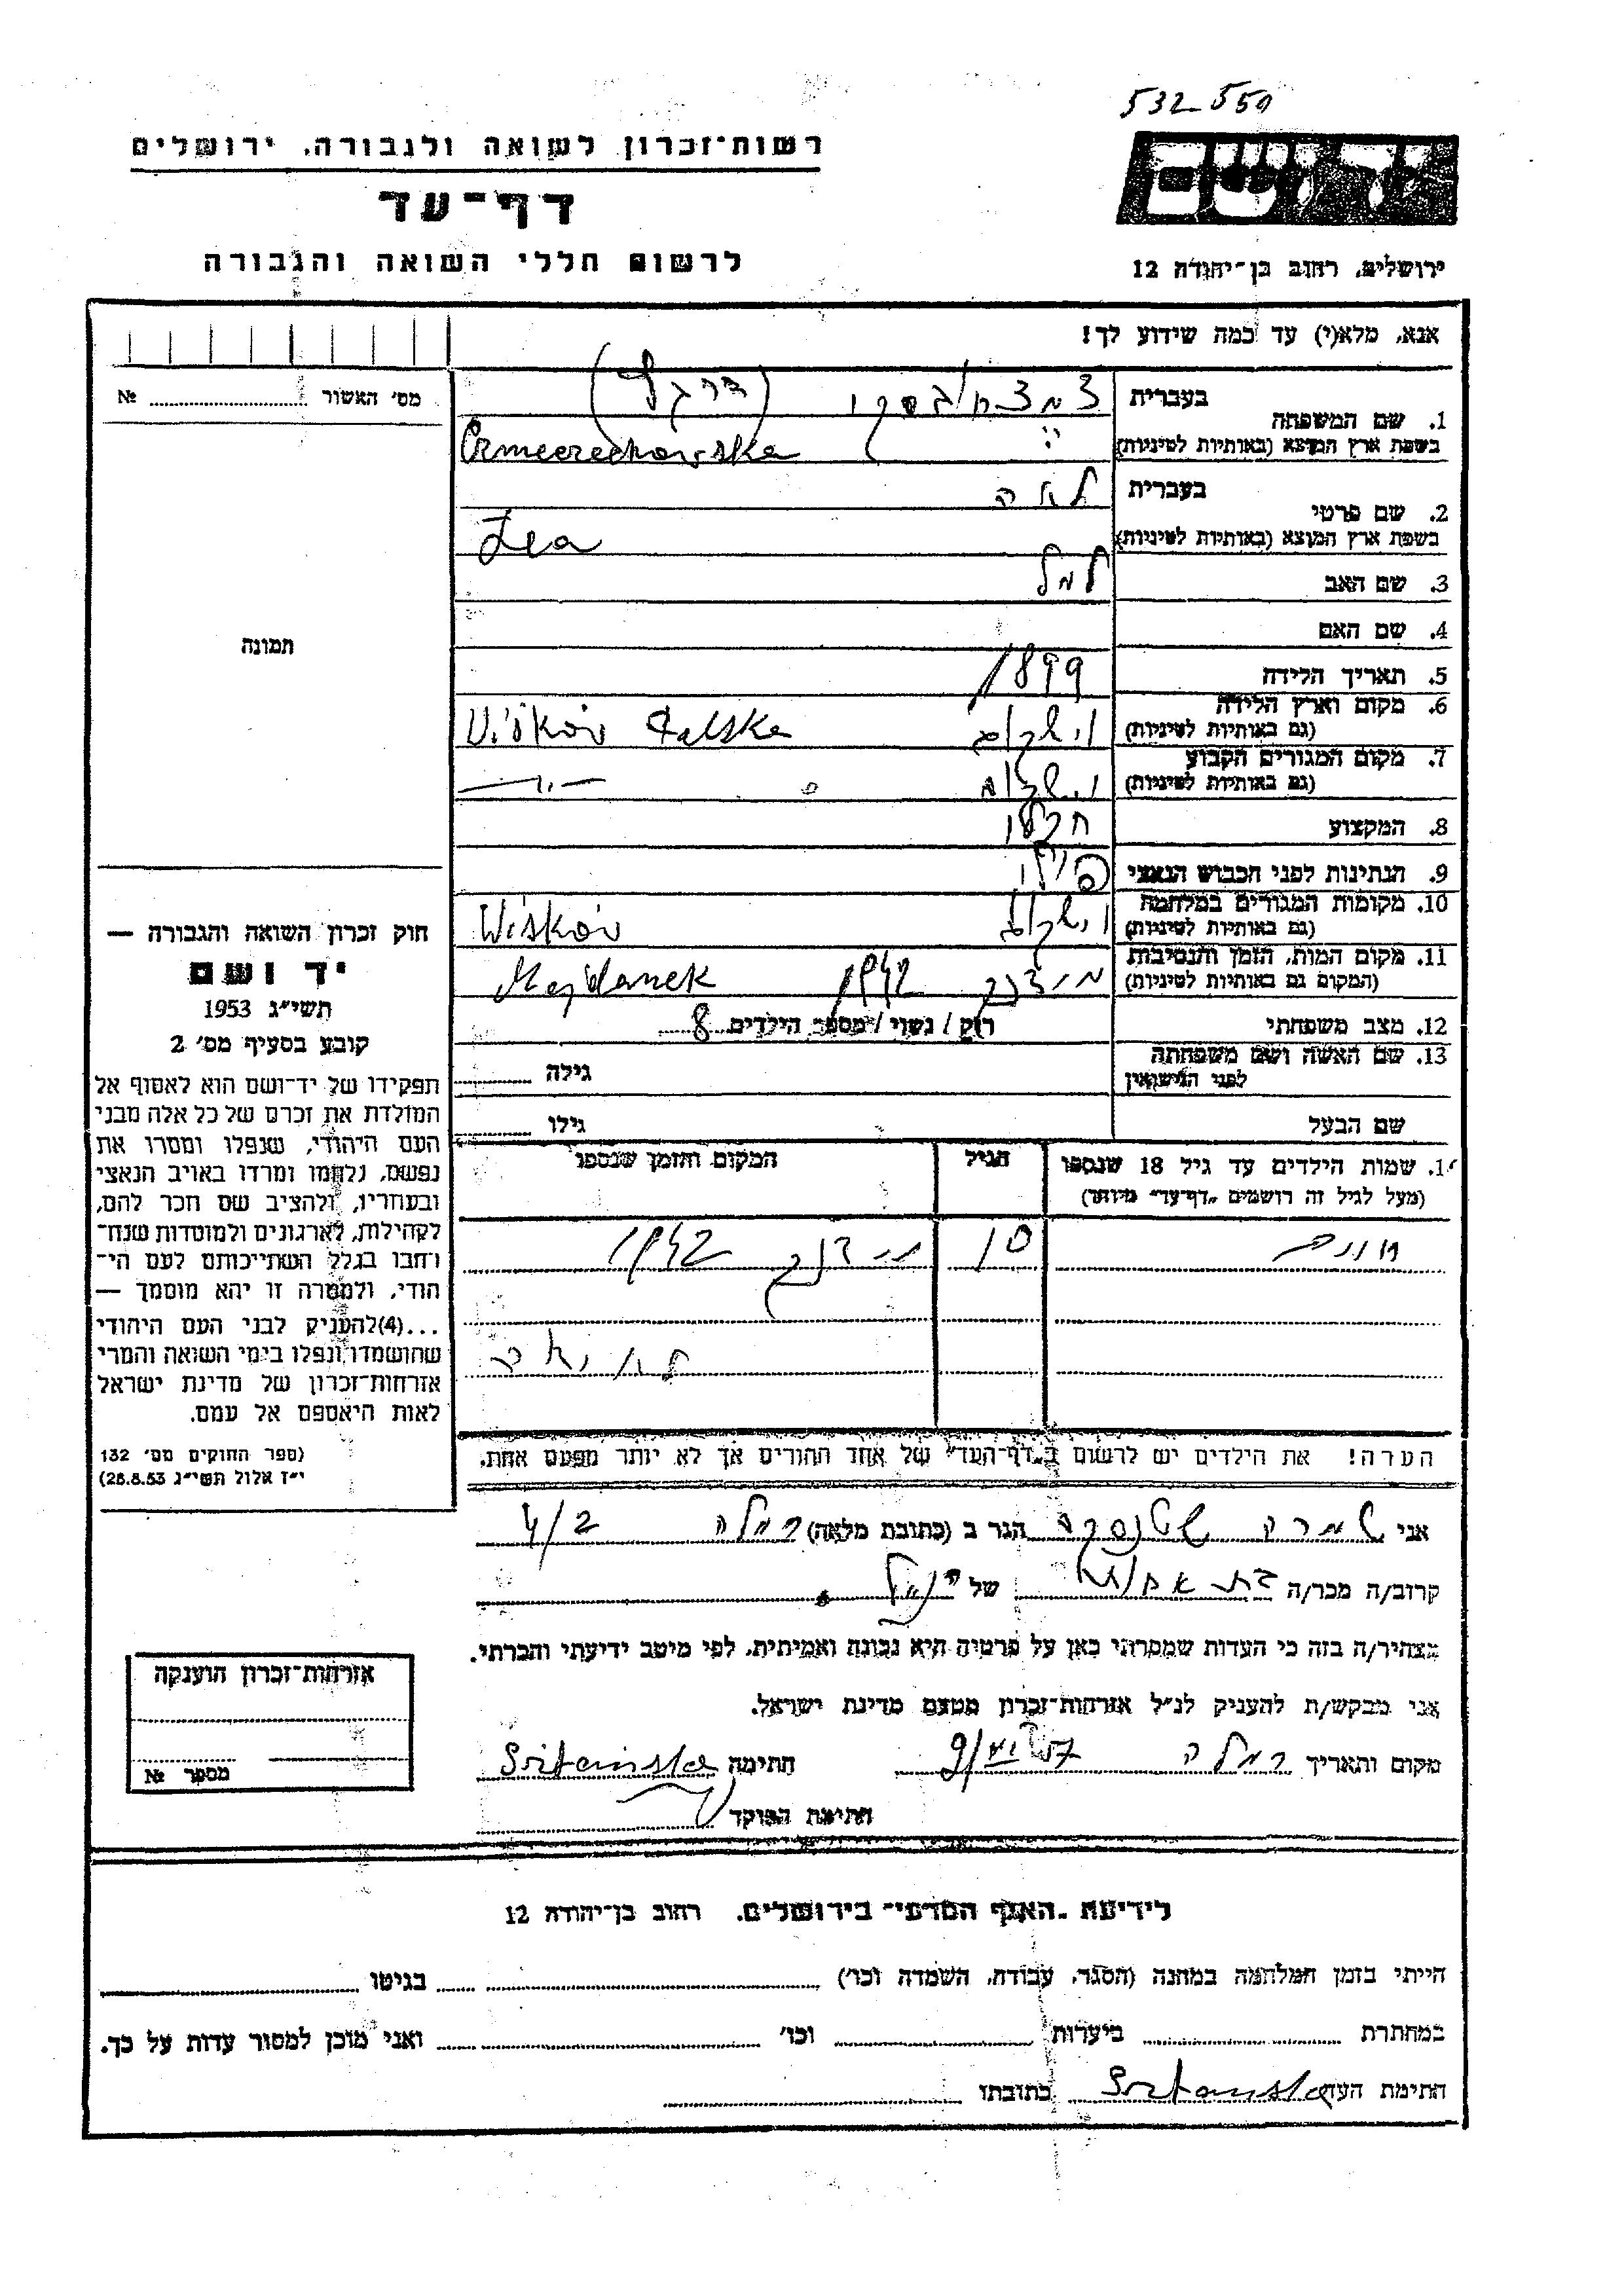 532 550
רשות-זכרון לשואה ולגבורה, ירושלים
דף-עד
לרשום חללי השואה והגבורה
יד ושם
ירושלים, רחוב בן-יהודה 12
אנא, מלא(י) עד כמה שידוע לך!
מס' האשור № 
1. שם המשפחה
בעברית
בשפת ארץ המוצא (באותיות לטיניות)
2. שם פרטי
בעברית לאה
בשפת ארץ המוצא (באותיות לטיניות) Lea
3. שם האב למל
4. שם האם
5. תאריך הלידה 1899
6. מקום וארץ הלידה
(גם באותיות לטיניות) Viśkóv
7. מקום המגורים הקבוע
(גם באותיות לטיניות)
8. המקצוע
9. הנתינות לפני הכבוש הנאצי
10. מקומות המגורים במלחמה
(גם באותיות לטיניות) Wiśkóv
11. מקום המות, הזמן והנסיבות
(המקום גם באותיות לטיניות) מיידנק 1942 Majdanek
12. מצב משפחתי רווק / נשוי / מספר הילדים 8
13. שם האשה ושם משפחתה
לפני הנישואין גילה
שם הבעל גילו
1. שמות הילדים עד גיל 18 שנספו
(מעל לגיל זה רושמים "דף-עד" מיוחד)
הגיל
המקום והזמן שנספו
10 מיידנק 1942
הערה! את הילדים יש לרשום ב"דף-העד" של אחד ההורים אך לא יותר מפעם אחת.
תמונה
חוק זכרון השואה והגבורה —
יד ושם
תשי"ג 1953
קובע בסעיף מס' 2
תפקידו של יד-ושם הוא לאסוף אל
המולדת את זכרם של כל אלה מבני
העם היהודי, שנפלו ומסרו את
נפשם, נלחמו ומרדו באויב הנאצי
ובעוזריו, ולהציב שם וזכר להם,
לקהילות, לארגונים ולמוסדות שנח־
רבו בגלל השתייכותם לעם הי־
הודי, ולמטרה זו יהא מוסמך —
...(4)להעניק לבני העם היהודי
שהושמדו ונפלו בימי השואה והמרי
אזרחות-זכרון של מדינת ישראל
לאות היאספם אל עמם.
(ספר החוקים מס' 132
י"ז אלול תשי"ג 28.8.53)
אני שמרה שטנסקה הגר ב (כתובת מלאה) רמלה 4/2
קרוב/ה מכר/ה בת אחות של הנ"ל
מצהיר/ה בזה כי העדות שמסרתי כאן על פרטיה היא נכונה ואמיתית, לפי מיטב ידיעתי והכרתי.
אני מבקש/ת להעניק לנ"ל אזרחות-זכרון מטעם מדינת ישראל.
מקום ותאריך רמלה חתימה Sztańska
חתימת הפוקד
אזרחות-זכרון הוענקה
מספר №
לידיעת "האגף המדעי" בירושלים, רחוב בן-יהודה 12
הייתי בזמן המלחמה במחנה (הסגר, עבודה, השמדה וכו') בגיטו
במחתרת ביערות וכו' ואני מוכן למסור עדות על כך.
חתימת העד Sztańska כתובתו